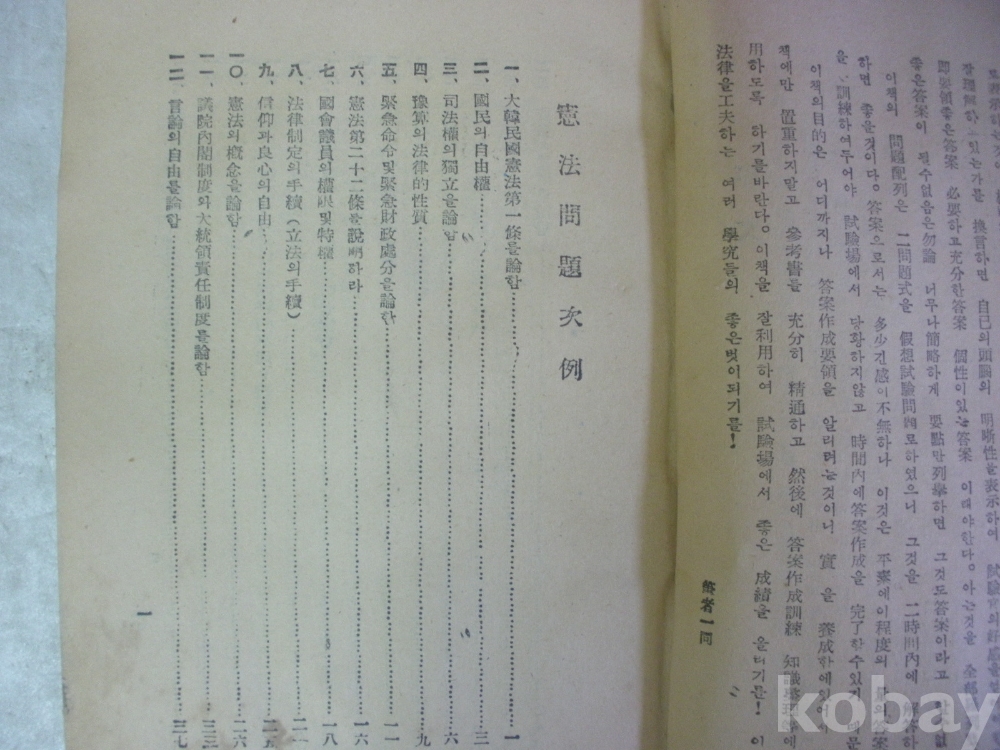 장理解하고있는가를 換言하면 自己의頭腦의 明晰性을表示하여
即要領좋은答案 必要하고充分한答案 個性이있는答案 이래야한다。아는것을 全部
좋은答案이 될수없음은勿論 너무나簡略하게 要點만列擧하면 그것도答案이라고
이책의 問題配列은 二問題式을 假想試驗問題로하였으니 그것을 二時間內에
하면 좋을것이다。答案으로서는 多少긴感이不無하나 이것은 平素에이程度의
을 訓練하여두어야 試驗場에서 당황하지않고 時間內에答案作成을 完了할수있기
이책의目的은 어디까지나 答案作成要領을 알리려는것이니 實 을 養成함에있어
책에만 置重하지말고 參考書를 充分히 精通하고 然後에 答案作成訓練 知識整理
用하도록 하기를바란다。이책을 잘利用하여 試驗場에서 좋은 成績을 올리기를! 이
法律을工夫하는 여러 學究들의 좋은벗이되기를!
筆者一同
憲法問題次例
一、大韓民國憲法第一條를論함 一
二、國民의自由權 三
三、司法權의獨立을論함 六
四、豫算의法律的性質 九
五、緊急命令및緊急財政處分을論함 一一
六、憲法第二十二條를說明하라 一六
七、國會議員의權限및特權 一八
八、法律制定의手續(立法의手續) 二一
九、信仰과良心의自由 二五
一〇、憲法의概念을論함 二六
一一、議院內閣制度와大統領責任制度를論함 三三
一二、言論의自由를論함 三七
一
kobay